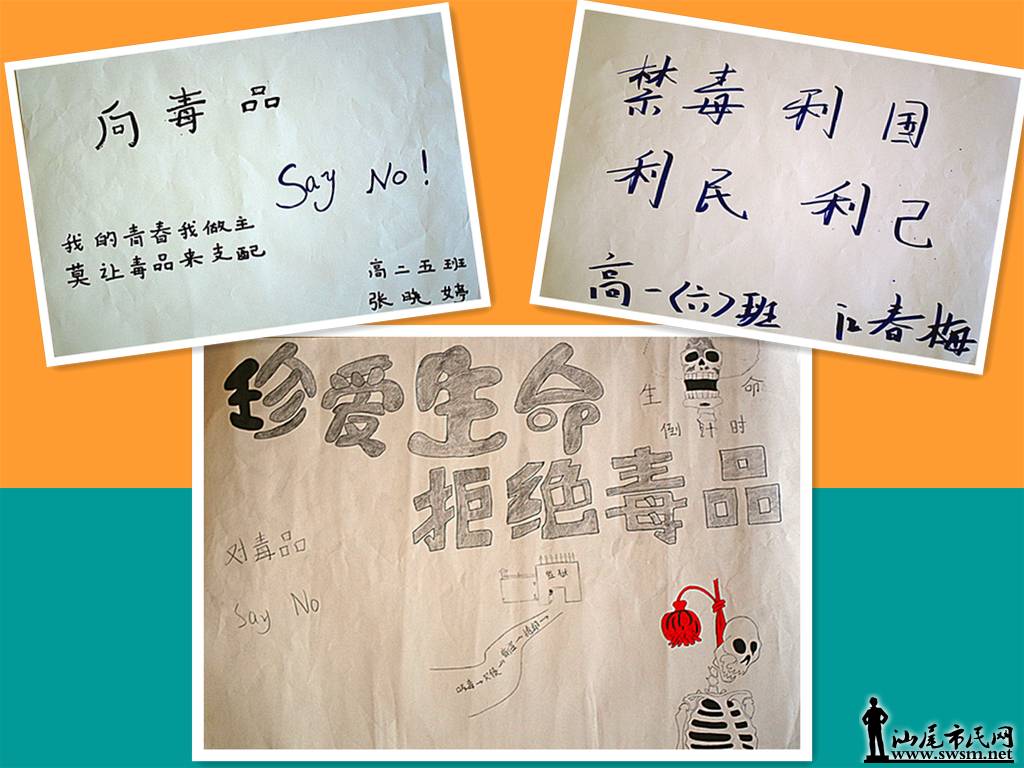 向毒品
Say No!
我的青春我做主
莫让毒品来支配
高二五班
张晓婷
禁毒利国
利民利己
高一(六)班 江春梅
珍爱生命
拒绝毒品
生命
倒计时
对毒品
Say No
监狱
汕尾市民网
www.swsm.net